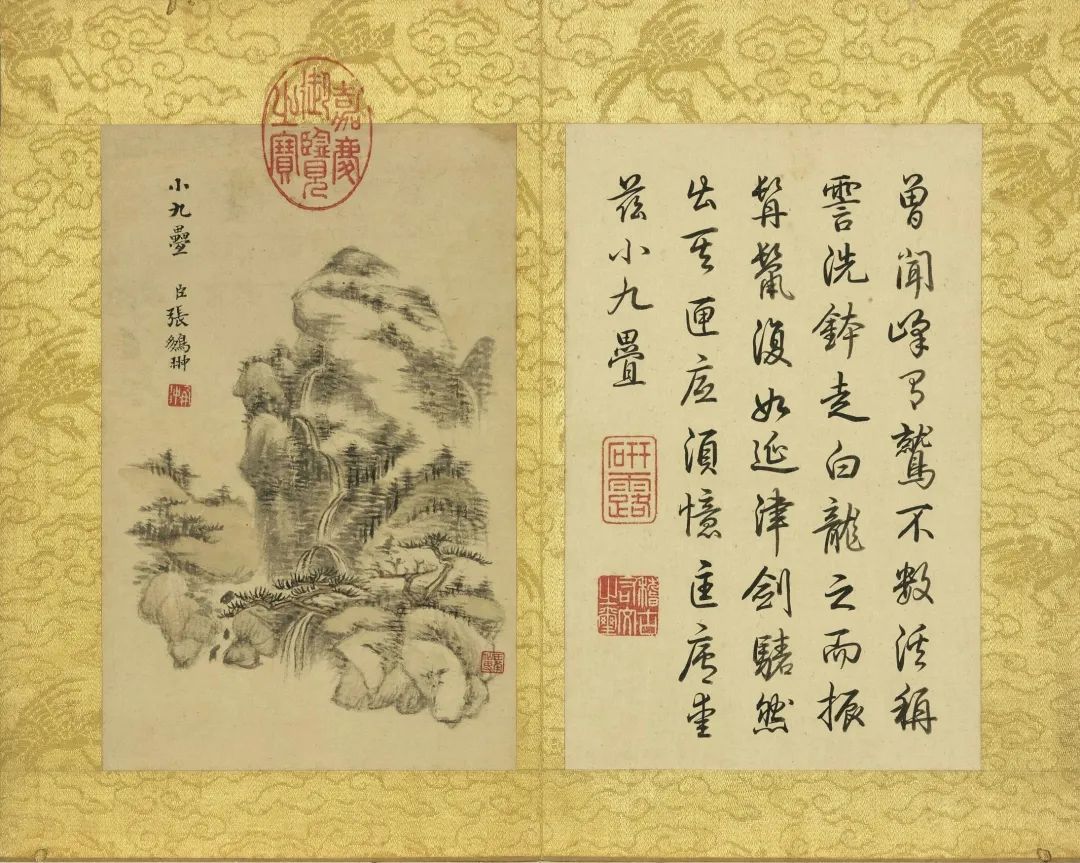 曾聞峰有鷲不數溪稱
霅洗鉢走白龍之而振
髯鬣復如延津劍騞然
出其匣應須憶匡廬愛
茲小九疊
研露
稽古右文之璽
嘉慶御覽之寶
小九疊
臣張鵬翀